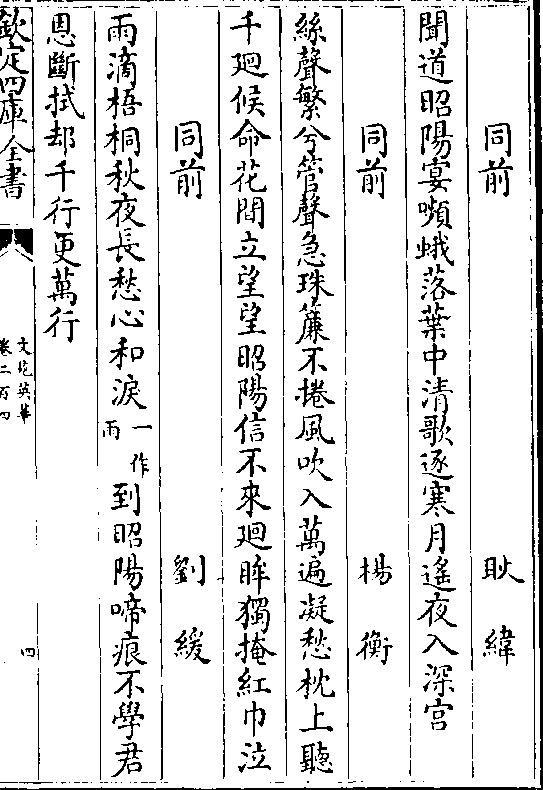 同前　耿緯
聞道昭陽宴嚬蛾落葉中清歌逐寒月遙夜入深宮
同前　楊衡
絲聲繁兮管聲急珠簾不捲風吹入萬遍凝愁枕上聽
千廻候命花間立望望昭陽信不來廻眸獨掩紅巾泣
同前　劉緩
雨滴梧桐秋夜長愁心和淚一作雨到昭陽啼痕不學君
恩斷拭却千行更萬行
欽定四庫全書
文苑英華
卷二百四
四